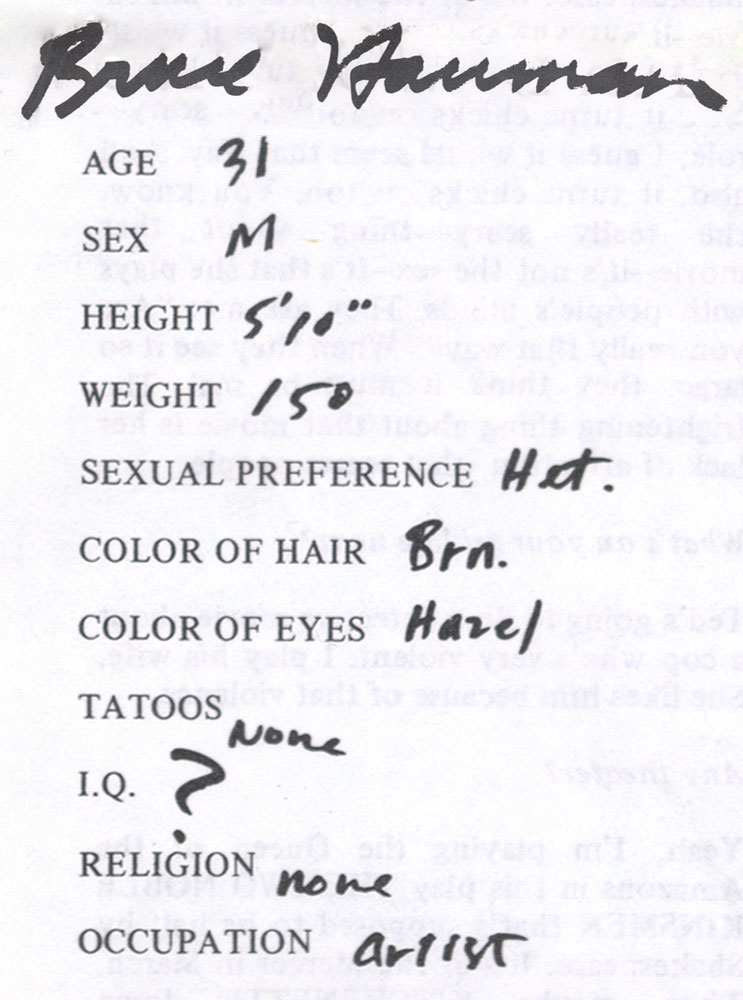 Bruce Nauman
AGE 31
SEX M
HEIGHT 5'10"
WEIGHT 150
SEXUAL PREFERENCE Het.
COLOR OF HAIR Brn.
COLOR OF EYES Hazel
TATOOS None
I.Q. ?
RELIGION none
OCCUPATION artist